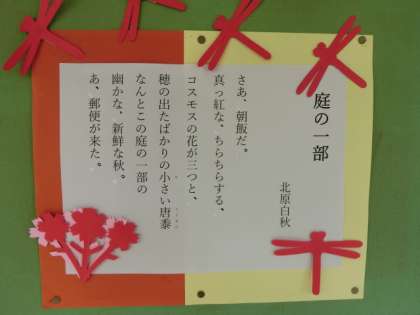 庭の一部
北原白秋
さあ、朝飯だ。
真っ紅な、ちらちらする、
コスモスの花が三つと、
穂の出たばかりの小さい唐黍
なんとこの庭の一部の
幽かな、新鮮な秋。
あ、郵便が来た。